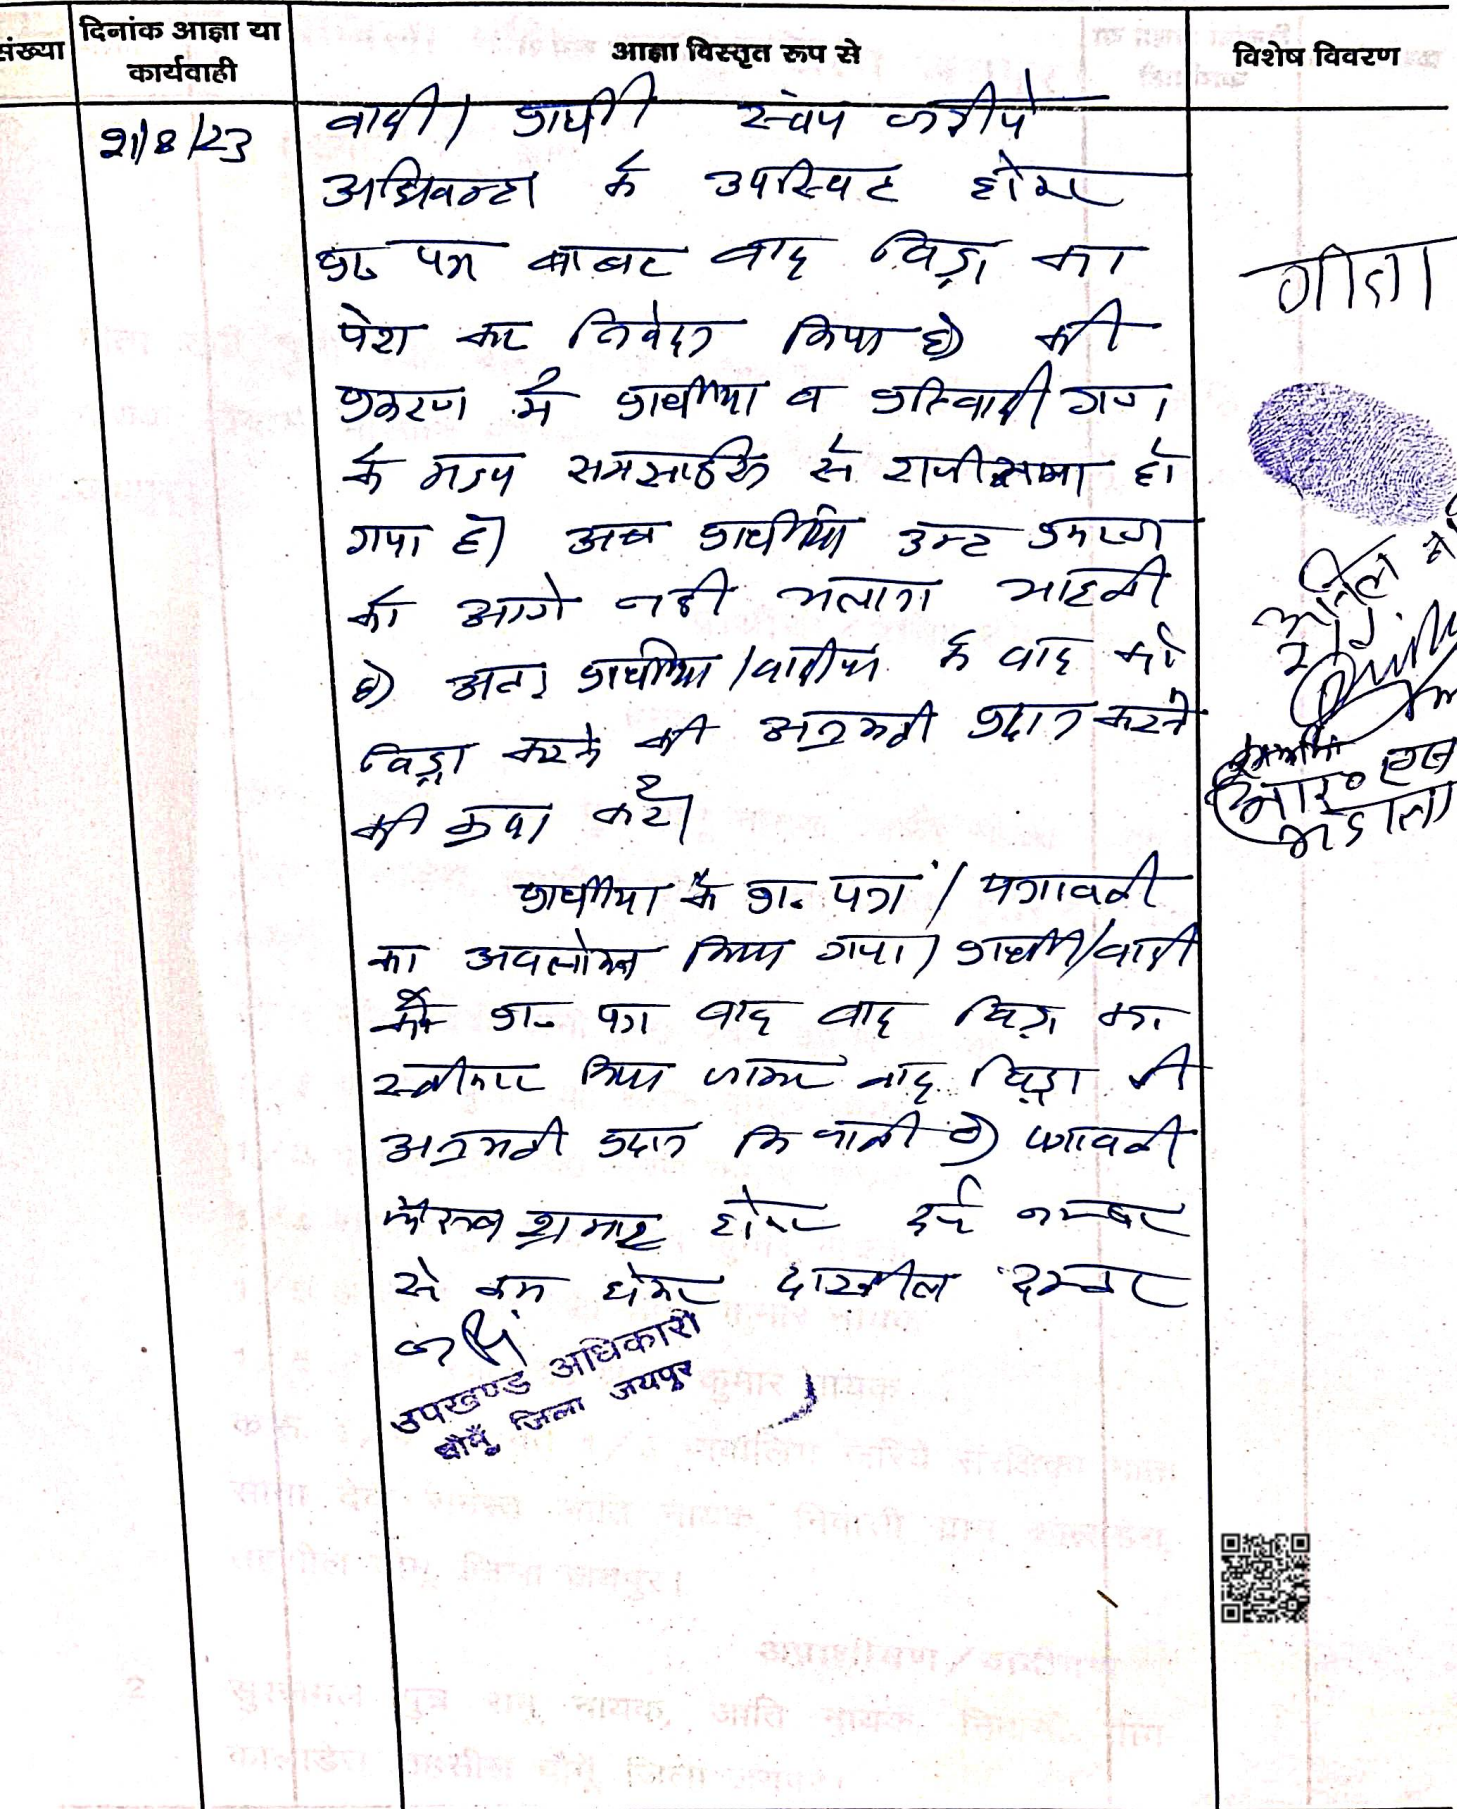 संख्या
दिनांक आज्ञा या
कार्यवाही
आज्ञा विस्तृत रूप से
विशेष विवरण
21/8/23
वादी/ प्रार्थी स्वंय जरीये
अधिवक्ता के उपस्थित होकर
प्रा. पत्र बाबत वाद विड्रा का
पेश कर निवेदन किया है की
प्रकरण में प्रार्थीया व प्रतिवादी गण
के मध्य समसाईस से राजीनामा हो
गया है। अब प्रार्थीया उक्त प्रकरण
को आगे नही चलाना चाहती
है। अतः प्रार्थीया/वादीया के वाद को
विड्रा करने की अनुमती प्रदान करने
की कृपा करें।
प्रार्थीया के प्रा. पत्र / पत्रावली
का अवलोकन किया गया। प्रार्थी/वादी
प्रा. पत्र वाद वाद विड्रा का
स्वीकार किया जाकर वाद विड्रा की
अनुमती प्रदान कि जाती है। पत्रावली
फैसल शुमार होकर दर्ज नम्बर
से कम होकर दाखील दफ्तर
हो।
उपखण्ड अधिकारी
चौमूँ जिला जयपुर
गीता